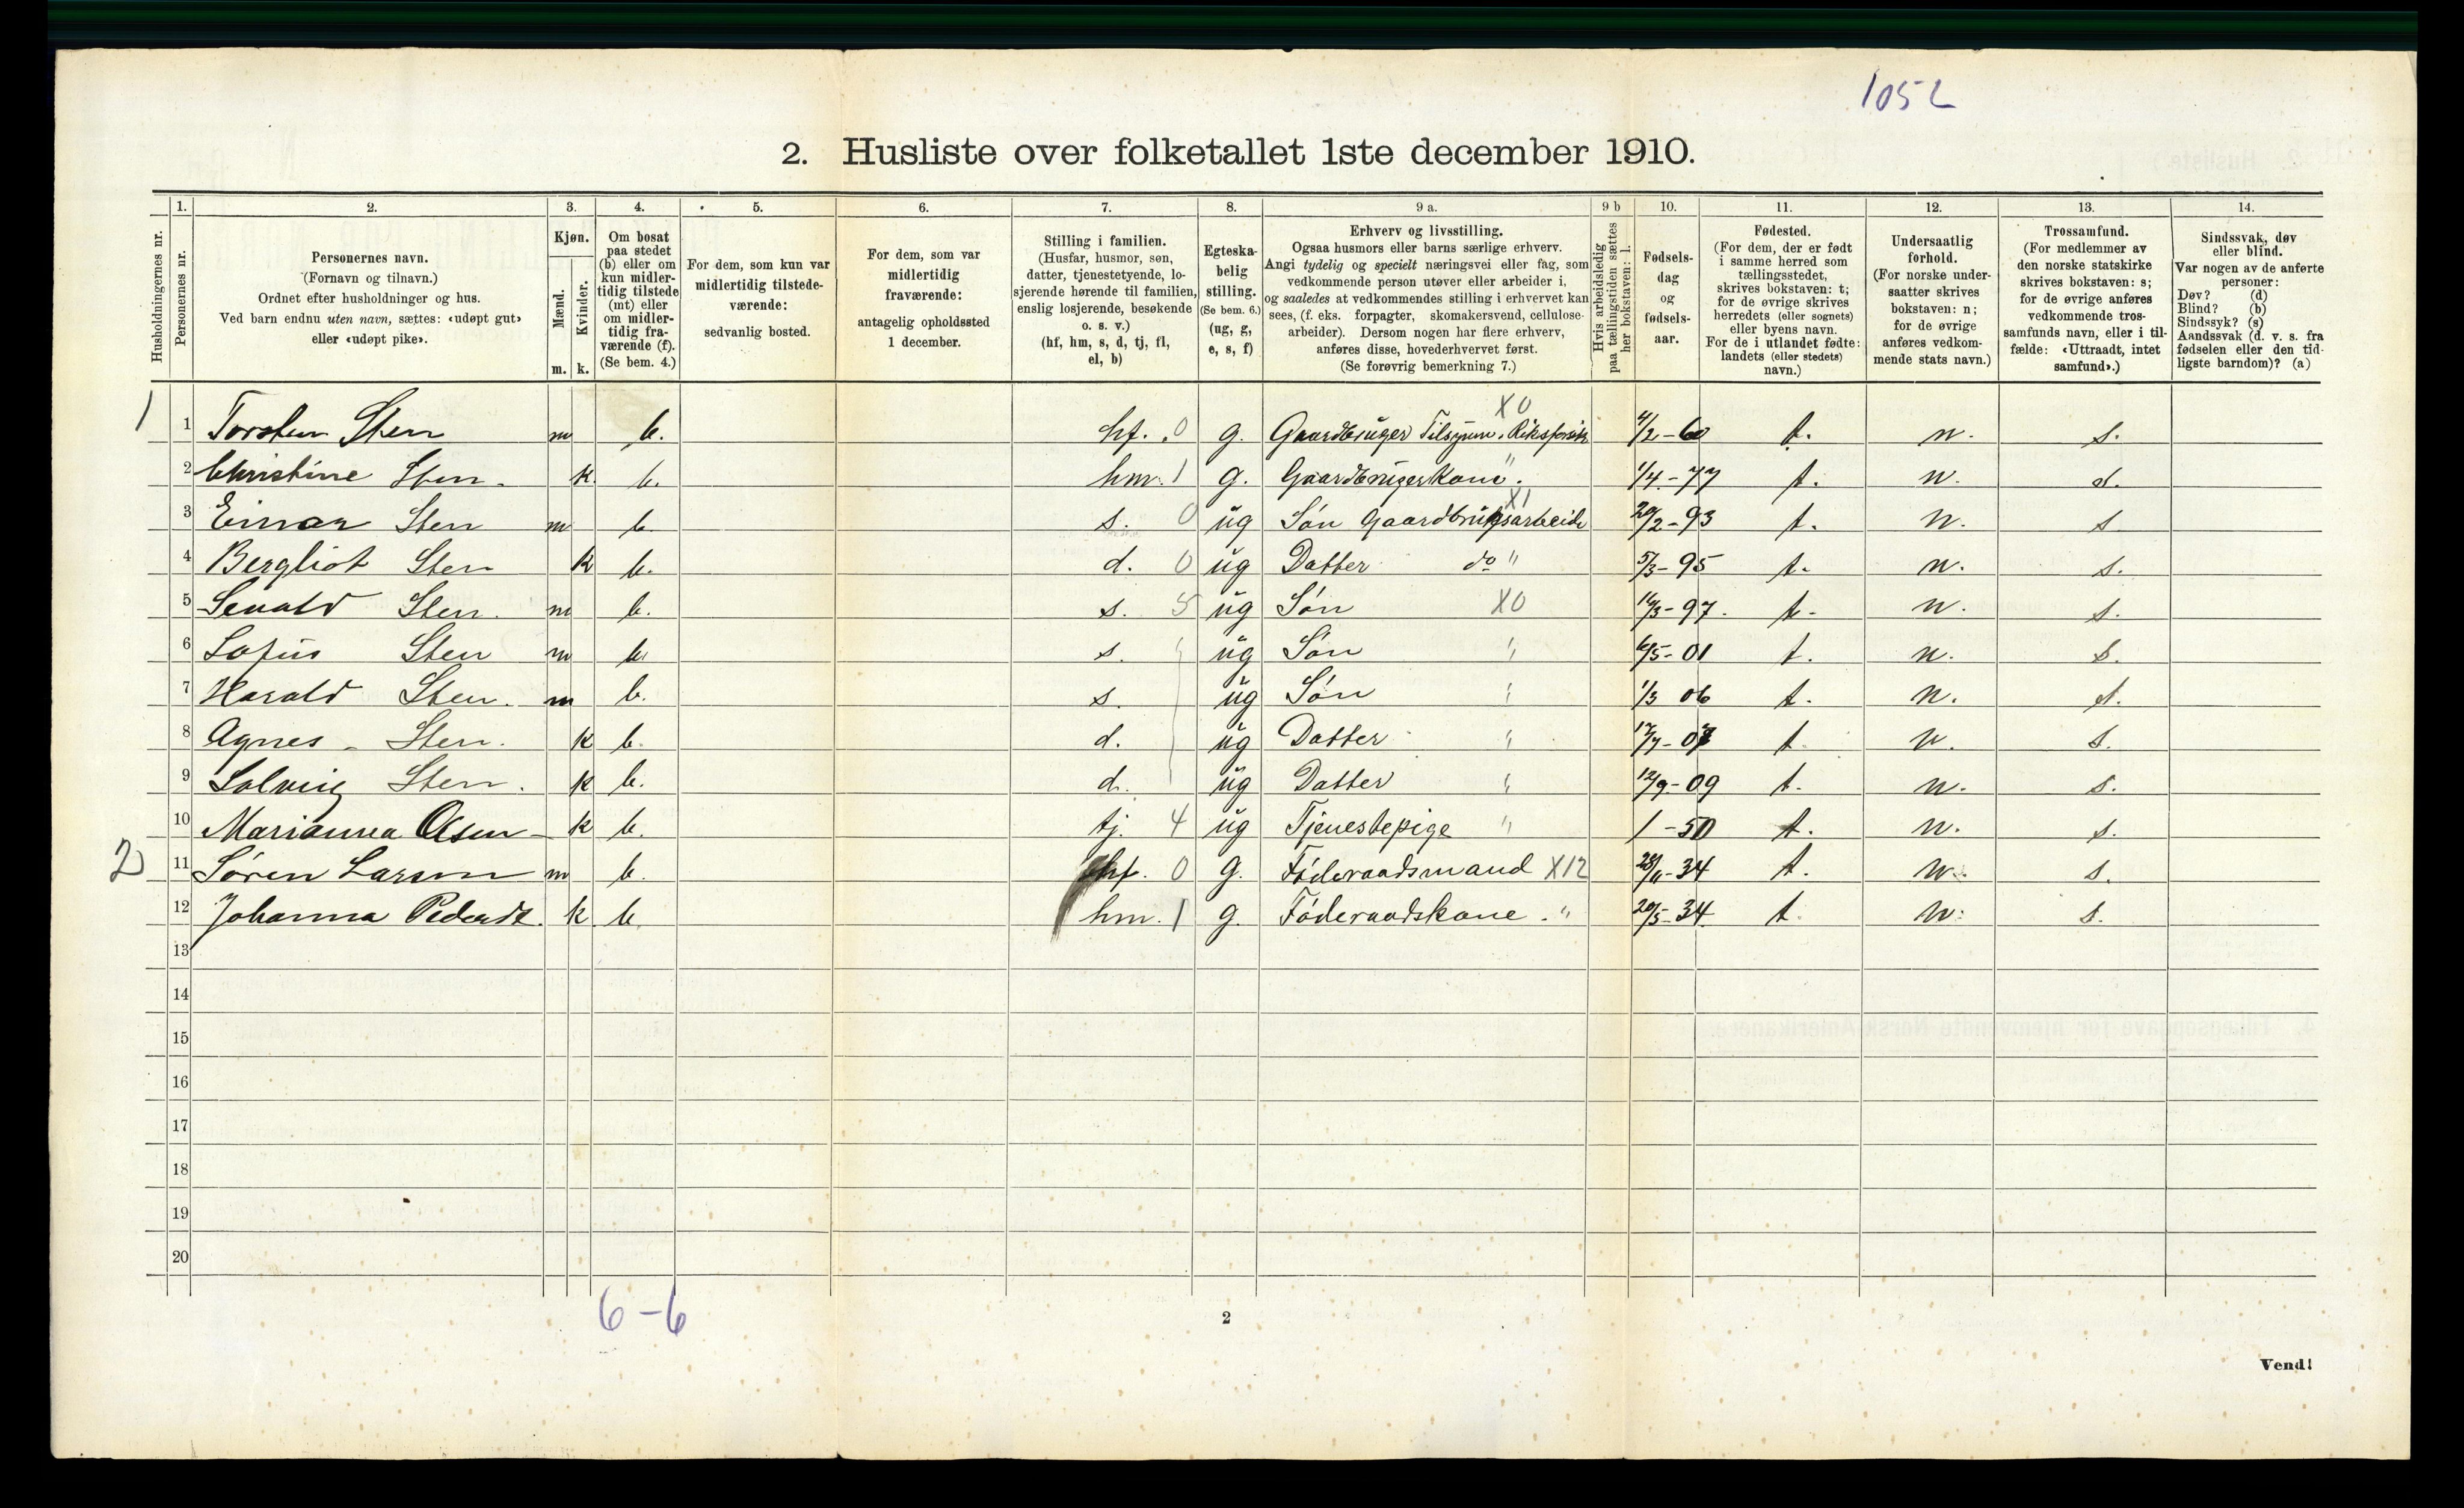 1052
2. Husliste over folketallet 1ste december 1910.
1. 2. 3. 4. 5. 6. 7. 8. 9 a. 9 b 10. 11. 12. 13. 14.
Husholdningernes nr.
Personernes nr.
Personernes navn.
(Fornavn og tilnavn.)
Ordnet efter husholdninger og hus.
Ved barn endnu uten navn, sættes: «udøpt gut»
eller «udøpt pike».
Kjøn.
Mænd.
Kvinder.
m. k.
Om bosat
paa stedet
(b) eller om
kun midler-
tidig tilstede
(mt) eller
om midler-
tidig fra-
værende (f).
(Se bem. 4.)
For dem, som kun var
midlertidig tilstede-
værende:
sedvanlig bosted.
For dem, som var
midlertidig
fraværende:
antagelig opholdssted
1 december.
Stilling i familien.
(Husfar, husmor, søn,
datter, tjenestetyende, lo-
sjerende hørende til familien,
enslig losjerende, besøkende
o. s. v.)
(hf, hm, s, d, tj, fl,
el, b)
Egteska-
belig
stilling.
(Se bem. 6.)
(ug, g,
e, s, f)
Erhverv og livsstilling.
Ogsaa husmors eller barns særlige erhverv.
Angi tydelig og specielt næringsvei eller fag, som
vedkommende person utøver eller arbeider i,
og saaledes at vedkommendes stilling i erhvervet kan
sees, (f. eks. forpagter, skomakersvend, cellulose-
arbeider). Dersom nogen har flere erhverv,
anføres disse, hovederhvervet først.
(Se forøvrig bemerkning 7.)
Hvis arbeidsledig
paa tællingstiden sættes
her bokstaven: l.
Fødsels-
dag
og
fødsels-
aar.
Fødested.
(For dem, der er født
i samme herred som
tællingsstedet,
skrives bokstaven: t;
for de øvrige skrives
herredets (eller sognets)
eller byens navn.
For de i utlandet fødte:
landets (eller stedets)
navn.)
Undersaatlig
forhold.
(For norske under-
saatter skrives
bokstaven: n;
for de øvrige
anføres vedkom-
mende stats navn.)
Trossamfund.
(For medlemmer av
den norske statskirke
skrives bokstaven: s;
for de øvrige anføres
vedkommende tros-
samfunds navn, eller i til-
fælde: «Uttraadt, intet
samfund».)
Sindssvak, døv
eller blind.
Var nogen av de anførte
personer:
Døv? (d)
Blind? (b)
Sindssyk? (s)
Aandssvak (d. v. s. fra
fødselen eller den tid-
ligste barndom)? (a)
X0
1 1 Torsten Sten m b. hf. 0 g. Gaardbruger Tilsynm. Riksforsik 4/2-60 t. n. s.
2 Christine Sten k. b. hm. 1 g. Gaardbrugerkone " 1/4-77 t. n. s.
X1
3 Einar Sten m b. s. 0 ug Søn Gaardbrugsarbeide 20/2-93 t. n. s
4 Bergliot Sten k b. d. 0 ug Datter do " 5/3-95 t. n. s.
5 Sevald Sten. m b. s. 5 ug Søn X0 16/3-97. t. n. s.
6 Sofus Sten m b. s. ug Søn " 6/5-01 t. n. s.
7 Harald Sten. m b. s. ug Søn " 1/3 06 t. n. s.
8 Agnes Sten. k b. d. ug Datter " 17/7-07 t n. s.
9 Solveig Sten. k b. d. ug Datter " 12/9-09 t. n. s.
10 Marianna Olsen k b. tj. 4 ug Tjenestepige " 1-50 t. n. s.
2 11 Søren Larsen m b. hf. 0 g. Føderaadsmand X12 28/11-34 t. n. s.
12 Johanna Pedersdt. k b. hm. 1 g. Føderaadskone. " 20/5-34 t n. s.
13
14
15
16
17
18
19
20
6-6
2
Vend!